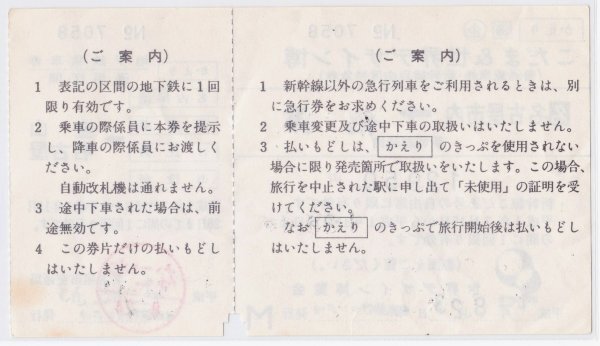 (ご 案 内)
1 表記の区間の地下鉄に1回
限り有効です。
2 乗車の際係員に本券を提示
し、降車の際係員にお渡しく
ださい。
自動改札機は通れません。
3 途中下車された場合は、前
途無効です。
4 この券片だけの払いもどし
はいたしません。
(ご 案 内)
1 新幹線以外の急行列車をご利用されるときは、別
に急行券をお求めください。
2 乗車変更及び途中下車の取扱いはいたしません。
3 払いもどしは、かえりのきっぷを使用されない
場合に限り発売箇所で取扱いをいたします。この場合、
旅行を中止された駅に申し出て「未使用」の証明を受
けてください。
なおかえりのきっぷで旅行開始後は払いもどし
はいたしません。